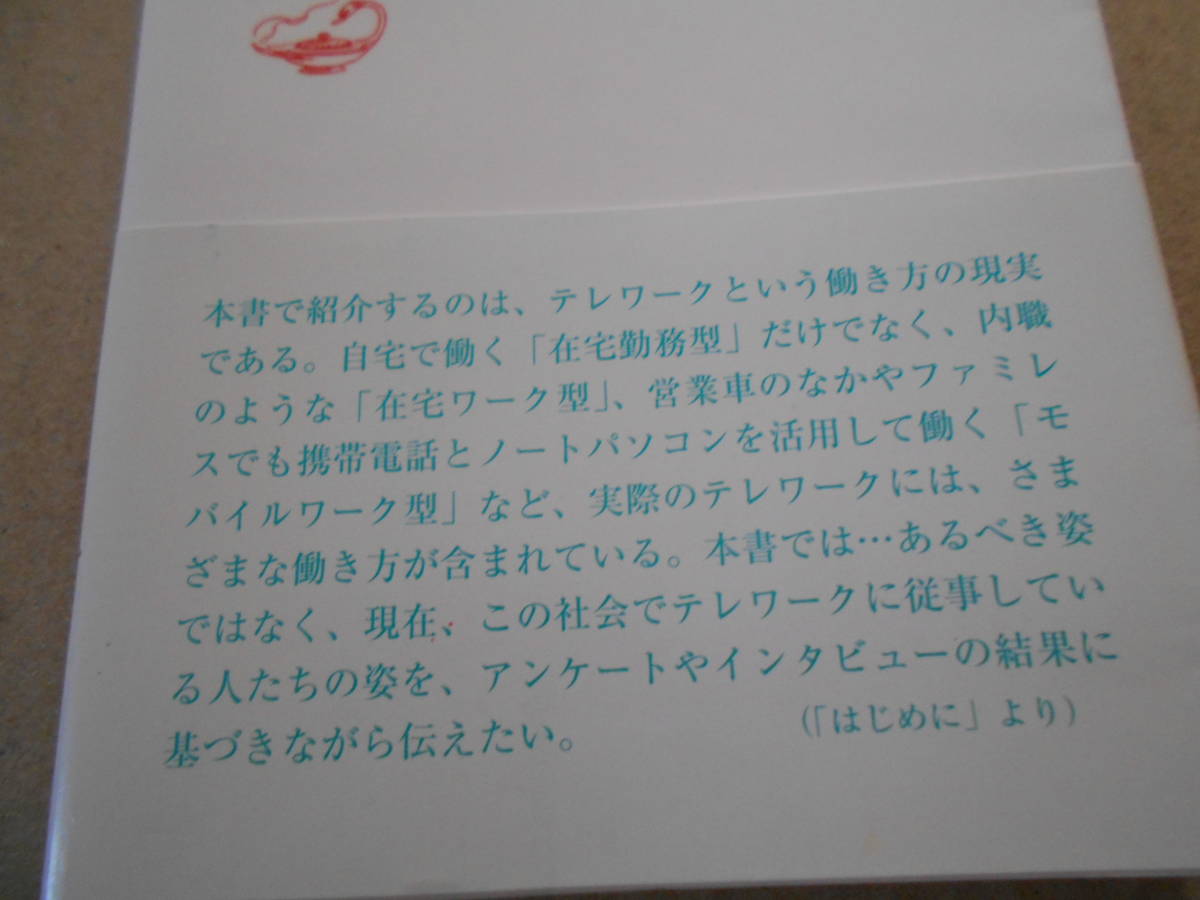 本書で紹介するのは、テレワークという働き方の現実
である。自宅で働く「在宅勤務型」だけでなく、内職
のような「在宅ワーク型」、営業車のなかやファミレ
スでも携帯電話とノートパソコンを活用して働く「モ
バイルワーク型」など、実際のテレワークには、さま
ざまな働き方が含まれている。本書では…あるべき姿
ではなく、現在、この社会でテレワークに従事してい
る人たちの姿を、アンケートやインタビューの結果に
基づきながら伝えたい。
(「はじめに」より)